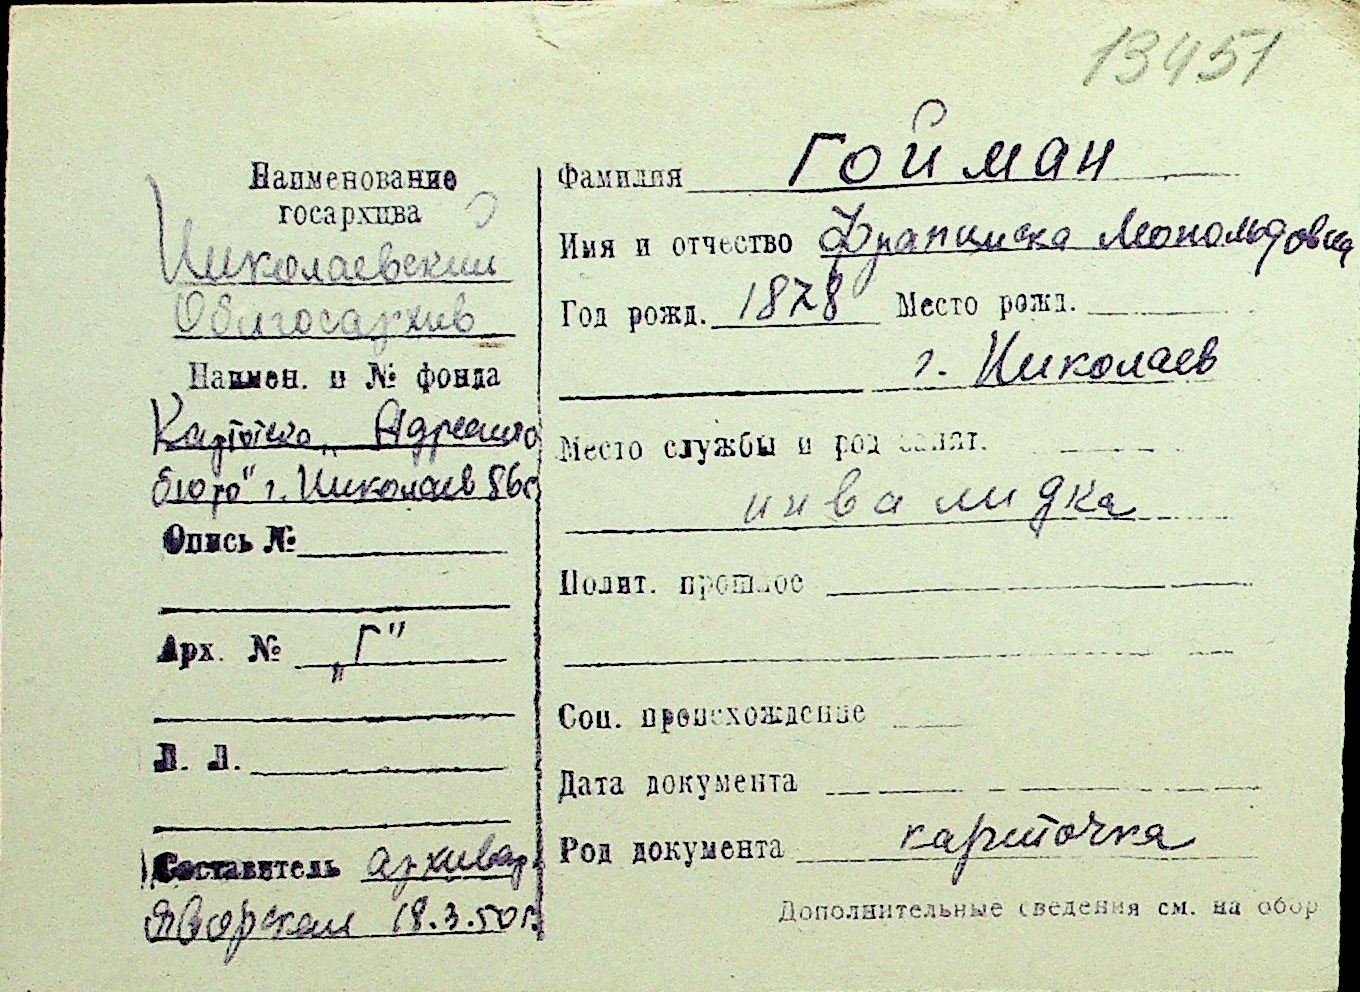 13451
Наименование
госархива
Николаевский
Облгосархив
Наимен. и № фонда
Картотека „Адресного
бюро" г. Николаев
Опись №
Арх. № „Г"
Л. Л.
Составитель архивар.
Яворская 18.3.50г.
Фамилия Гойман
Имя и отчество Франциска
Год рожд. 1878 Место рожд.
г. Николаев
Место службы и род занят.
инвалидка
Полит. прошлое
Соц. происхождение
Дата документа
Род документа карточка
Дополнительные сведения см. на обор